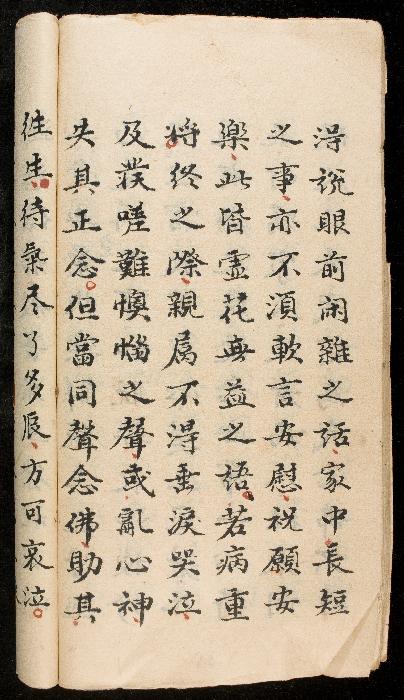 淂說眼前闲雜之話家中長短
之事亦不湏軟言安慰祝願安
樂此皆虛花無益之語若病重
将终之際親属不淂垂淚哭泣
及發嗟難懊惱之聲或亂心神
失其正念但當同聲念佛助其
徃生待氣尽了多辰方可哀泣